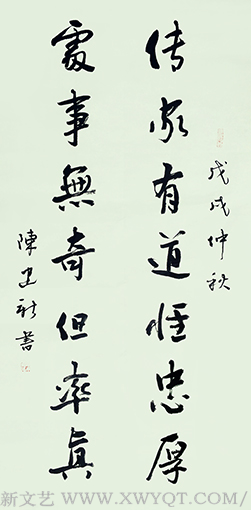 戊戌仲秋
传家有道惟忠厚
處事無奇但率真
陳建新書
新文艺 WWW.XWYQT.COM